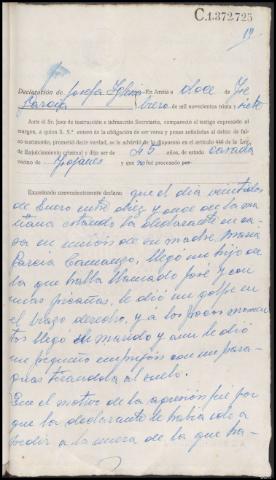 C.1.372.725
19
Declaración de Josefa Iglesias En Arzúa a doce de Fe
García brero de mil novecientos treinta y siete
Ante el Sr. Juez de instrucción e infrascrito Secretario, compareció el testigo expresado al
margen, a quien S. S.ª enteró de la obligación de ser veraz y penas señaladas al delito de falso
testimonio, prometió decir verdad, se le advirtió de lo dispuesto en el artículo 446 de la Ley
de Enjuiciamiento criminal y dijo ser de 45 años, de estado casada
vecino de y que no fué procesado por
Examinado convenientemente declara: que el día veintidos
de Enero entre diez y once de la ma-
ñana estando la declarante en ca-
sa en unión de su madre María
García llegó un hijo de
la que habla llamado José y con
malas le dió un golpe en
el brazo derecho, y á los pocos momen-
tos llegó su marido y aun le dió
un pequeño empujón con un para-
guas tirandola al suelo.
Que el motivo de la agresión fué por
que la declarante había ido a
pedir a la nuera de la que ha-